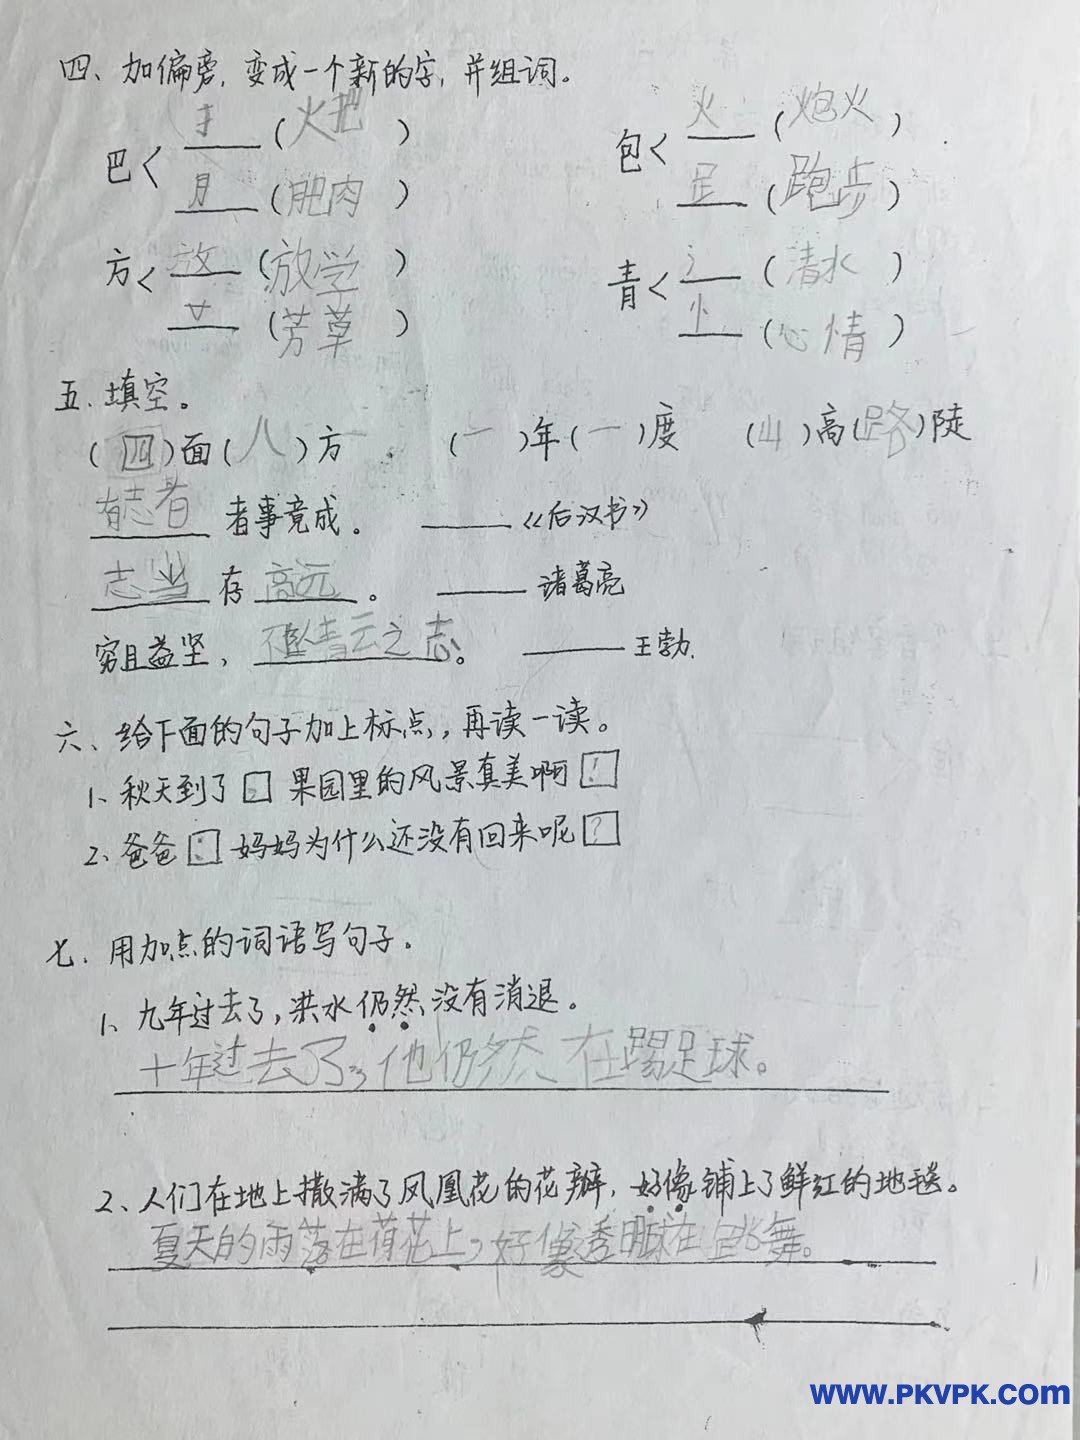 四、加偏旁,变成一个新的字,并组词。
巴< 扌 (火把) 包< 火 (炮火)
月 (肥肉) 𧾷 (跑步)
方< 放 (放学) 青< 氵 (清水)
艹 (芳草) 忄 (心情)
五.填空。
(四)面(八)方 (一)年(一)度 (山)高(路)陡
有志者 者事竟成。 ——《后汉书》
志当 存 高远 。 ——诸葛亮
穷且益坚, 不坠青云之志。 ——王勃.
六、给下面的句子加上标点,再读一读。
1、秋天到了 , 果园里的风景真美啊 !
2、爸爸 : 妈妈为什么还没有回来呢 ?
七.用加点的词语写句子.
1、九年过去了,洪水仍然没有消退。
十年过去了,他仍然在踢足球。
2、人们在地上撒满了凤凰花的花瓣,好像铺上了鲜红的地毯。
夏天的雨落在荷花上,好像透明球在跳舞。
www.PKVPK.com